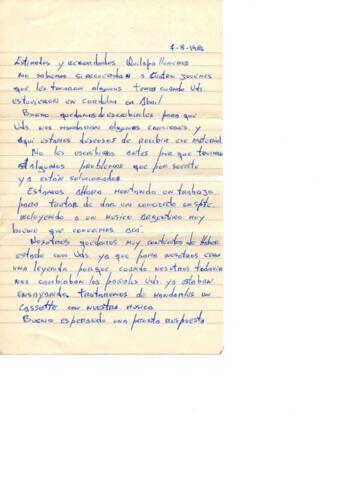 7-8-1986
Estimados y recordados Quilapallunenses
No sabemos si recuerdan a cuatro jovenes
que les tocaron algunos temas cuando Uds.
estuvieron en Cordoba en Abril
Bueno quedamos de escribirles para que
Uds. nos mandaran algunas canciones. y
aqui estamos deseosos de recibir ese material
No les escribimos antes por que tuvimos
algunos problemas que por suerte
ya estan solucionados
Estamos ahora montando un trabajo
para tratar de dar un concierto en Spte.
incluyendo a un musico argentino muy
bueno que conocimos acá.
Nosotros quedamos muy contentos de haber
estado con Uds. ya que para nosotros eran
una leyenda porque cuando nosotros todavia
nos cambiaban los pañales Uds. ya estaban
ensayando. trataremos de mandarles un
cassette con nuestra musica
Bueno esperando una pronta respuesta